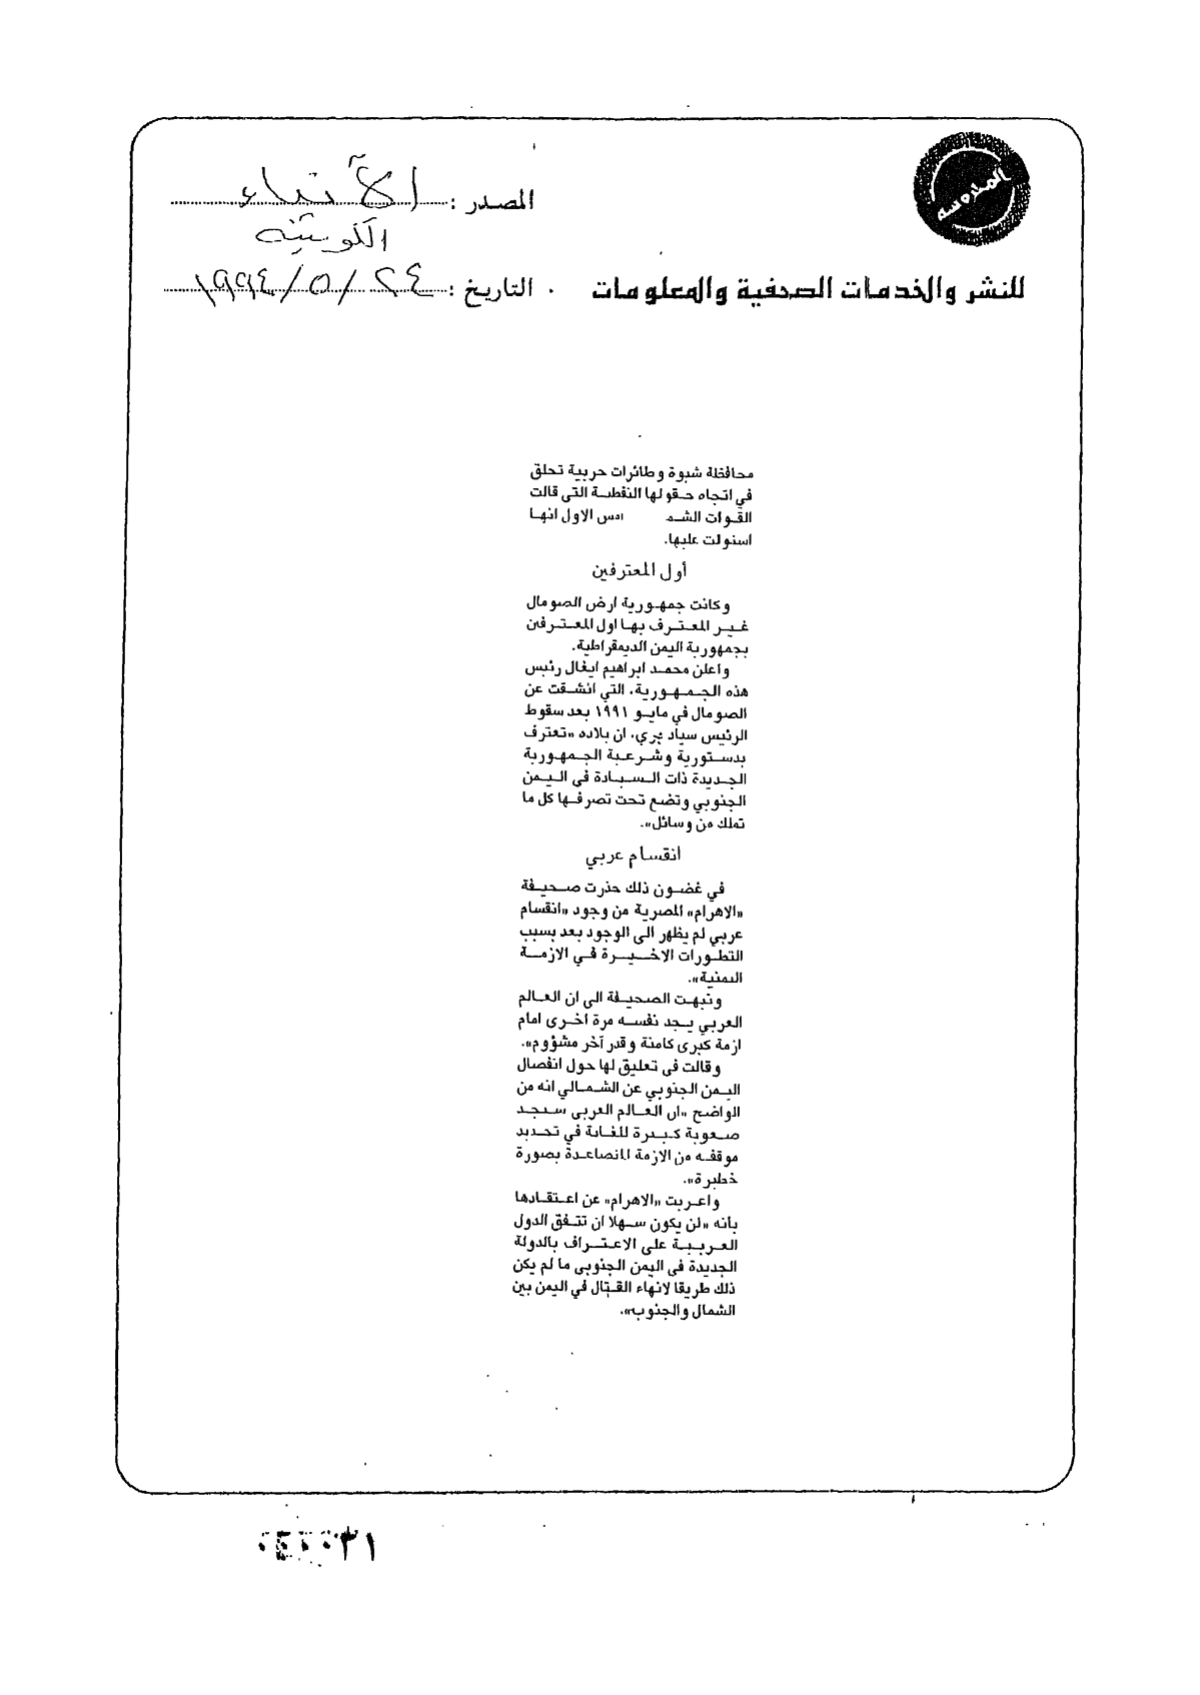 المحروسه
المصدر : الأنباء
الكويتيه
للنشر والخدمات الصحفية والمعلومات
التاريخ : ٢٤ / ٥ / ١٩٩٤
محافظة شبوة وطائرات حربية تحلق
في اتجاه حقولها النفطية التي قالت
القوات امس الاول انها
استولت عليها.
أول المعترفين
وكانت جمهورية ارض الصومال
غير المعترف بها اول المعترفين
بجمهورية اليمن الديمقراطية.
واعلن محمد ابراهيم ايغال رئيس
هذه الجمهورية، التي انشقت عن
الصومال في مايو ١٩٩١ بعد سقوط
الرئيس سياد بري، ان بلاده «تعترف
بدستورية وشرعية الجمهورية
الجديدة ذات السيادة في اليمن
الجنوبي وتضع تحت تصرفها كل ما
تملك من وسائل».
انقسام عربي
في غضون ذلك حذرت صحيفة
«الاهرام» المصرية من وجود «انقسام
عربي لم يظهر الى الوجود بعد بسبب
التطورات الاخيرة في الازمة
اليمنية».
ونبهت الصحيفة الى ان العالم
العربي يجد نفسه مرة اخرى امام
ازمة كبرى كامنة وقدر آخر مشؤوم».
وقالت في تعليق لها حول انفصال
اليمن الجنوبي عن الشمالي انه من
الواضح «ان العالم العربي سيجد
صعوبة كبيرة للغاية في تحديد
موقفه من الازمة المتصاعدة بصورة
خطيرة».
واعربت «الاهرام» عن اعتقادها
بانه «لن يكون سهلا ان تتفق الدول
العربية على الاعتراف بالدولة
الجديدة في اليمن الجنوبي ما لم يكن
ذلك طريقا لانهاء القتال في اليمن بين
الشمال والجنوب».